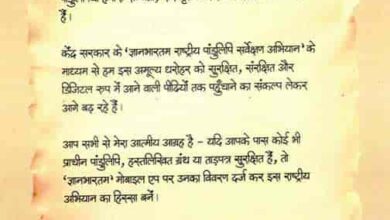 हैं।
केंद्र सरकार के 'ज्ञानभारतम राष्ट्रीय पांडुलिपि सर्वेक्षण अभियान' के
माध्यम से हम इस अमूल्य धरोहर को सुरक्षित, संरक्षित और
डिजिटल रूप में आने वाली पीढ़ियों तक पहुँचाने का संकल्प लेकर
आगे बढ़ रहे हैं।
आप सभी से मेरा आत्मीय आग्रह है – यदि आपके पास कोई भी
प्राचीन पांडुलिपि, हस्तलिखित ग्रंथ या ताड़पत्र सुरक्षित हैं, तो
'ज्ञानभारतम' मोबाइल एप पर उनका विवरण दर्ज कर इस राष्ट्रीय
अभियान का हिस्सा बनें।